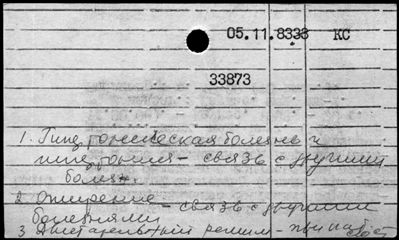 05.11.8333 КС
33873
1. Гипертоническая болезнь и
гипертония – связь с другими
болез.
2. Ожирение – связь с другими
болезнями
3 Двигательный режим – при